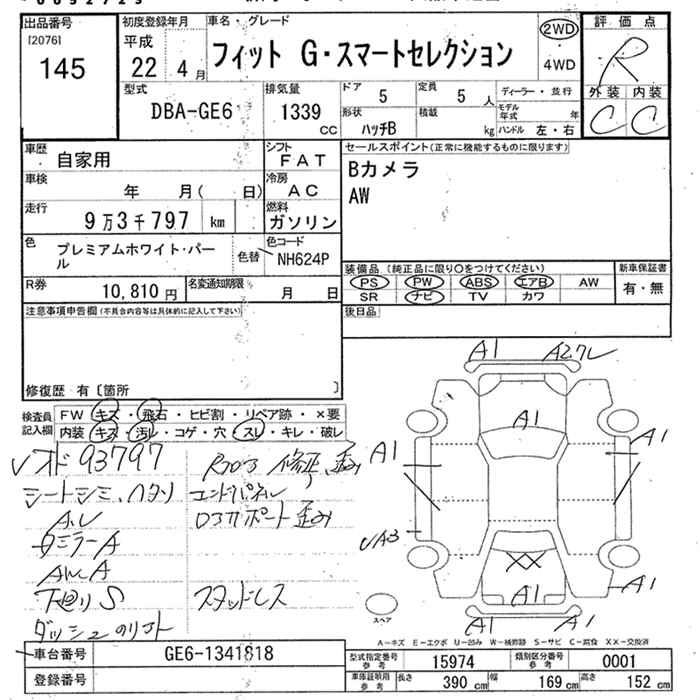 出品番号
[2076]
145
初度登録年月
平成
22年 4月
車名・グレード
フィット G・スマートセレクション
2WD
4WD
評価点
R
外装 内装
C C
型式
DBA-GE6
排気量
1339
cc
ドア 5
定員 5 人
ディーラー・並行
形状 ハッチB
積載 kg
モデル年式 年
ハンドル 左・右
車歴 自家用
シフト FAT
車検 年 月( 日)
冷房 AC
走行 9万3千797 km
燃料 ガソリン
色 プレミアムホワイト・パール
色替
色コード NH624P
R券 10,810 円
名変通知期限 月 日
セールスポイント(正常に機能するものに限ります)
Bカメラ
AW
装備品 (純正品に限り○をつけてください)
PS PW ABS エアB AW
SR ナビ TV カワ
新車保証書
有・無
後日品
注意事項申告欄(不具合内容等は具体的に記入して下さい)
修復歴 有〔箇所 〕
検査員記入欄
FW キズ・飛石・ヒビ割・リペア跡・×要
内装 キズ・汚レ・コゲ・穴・スレ・キレ・破レ
93797
シートシミ、ハタソ
エンドパネル
ミラーA
AWA
下廻りS
スタッドレス
ダッシュのリフト
A1
A1
A1
A1
A1
A1
A1
A1
XX
スペア
A-キズ E-エクボ U-凹み W-補修跡 S-サビ C-腐食 XX-交換済
車台番号 GE6-1341818
登録番号
型式指定番号参考 15974
類別区分番号参考 0001
車庫証明用参考 長さ 390 cm 幅 169 cm 高さ 152 cm